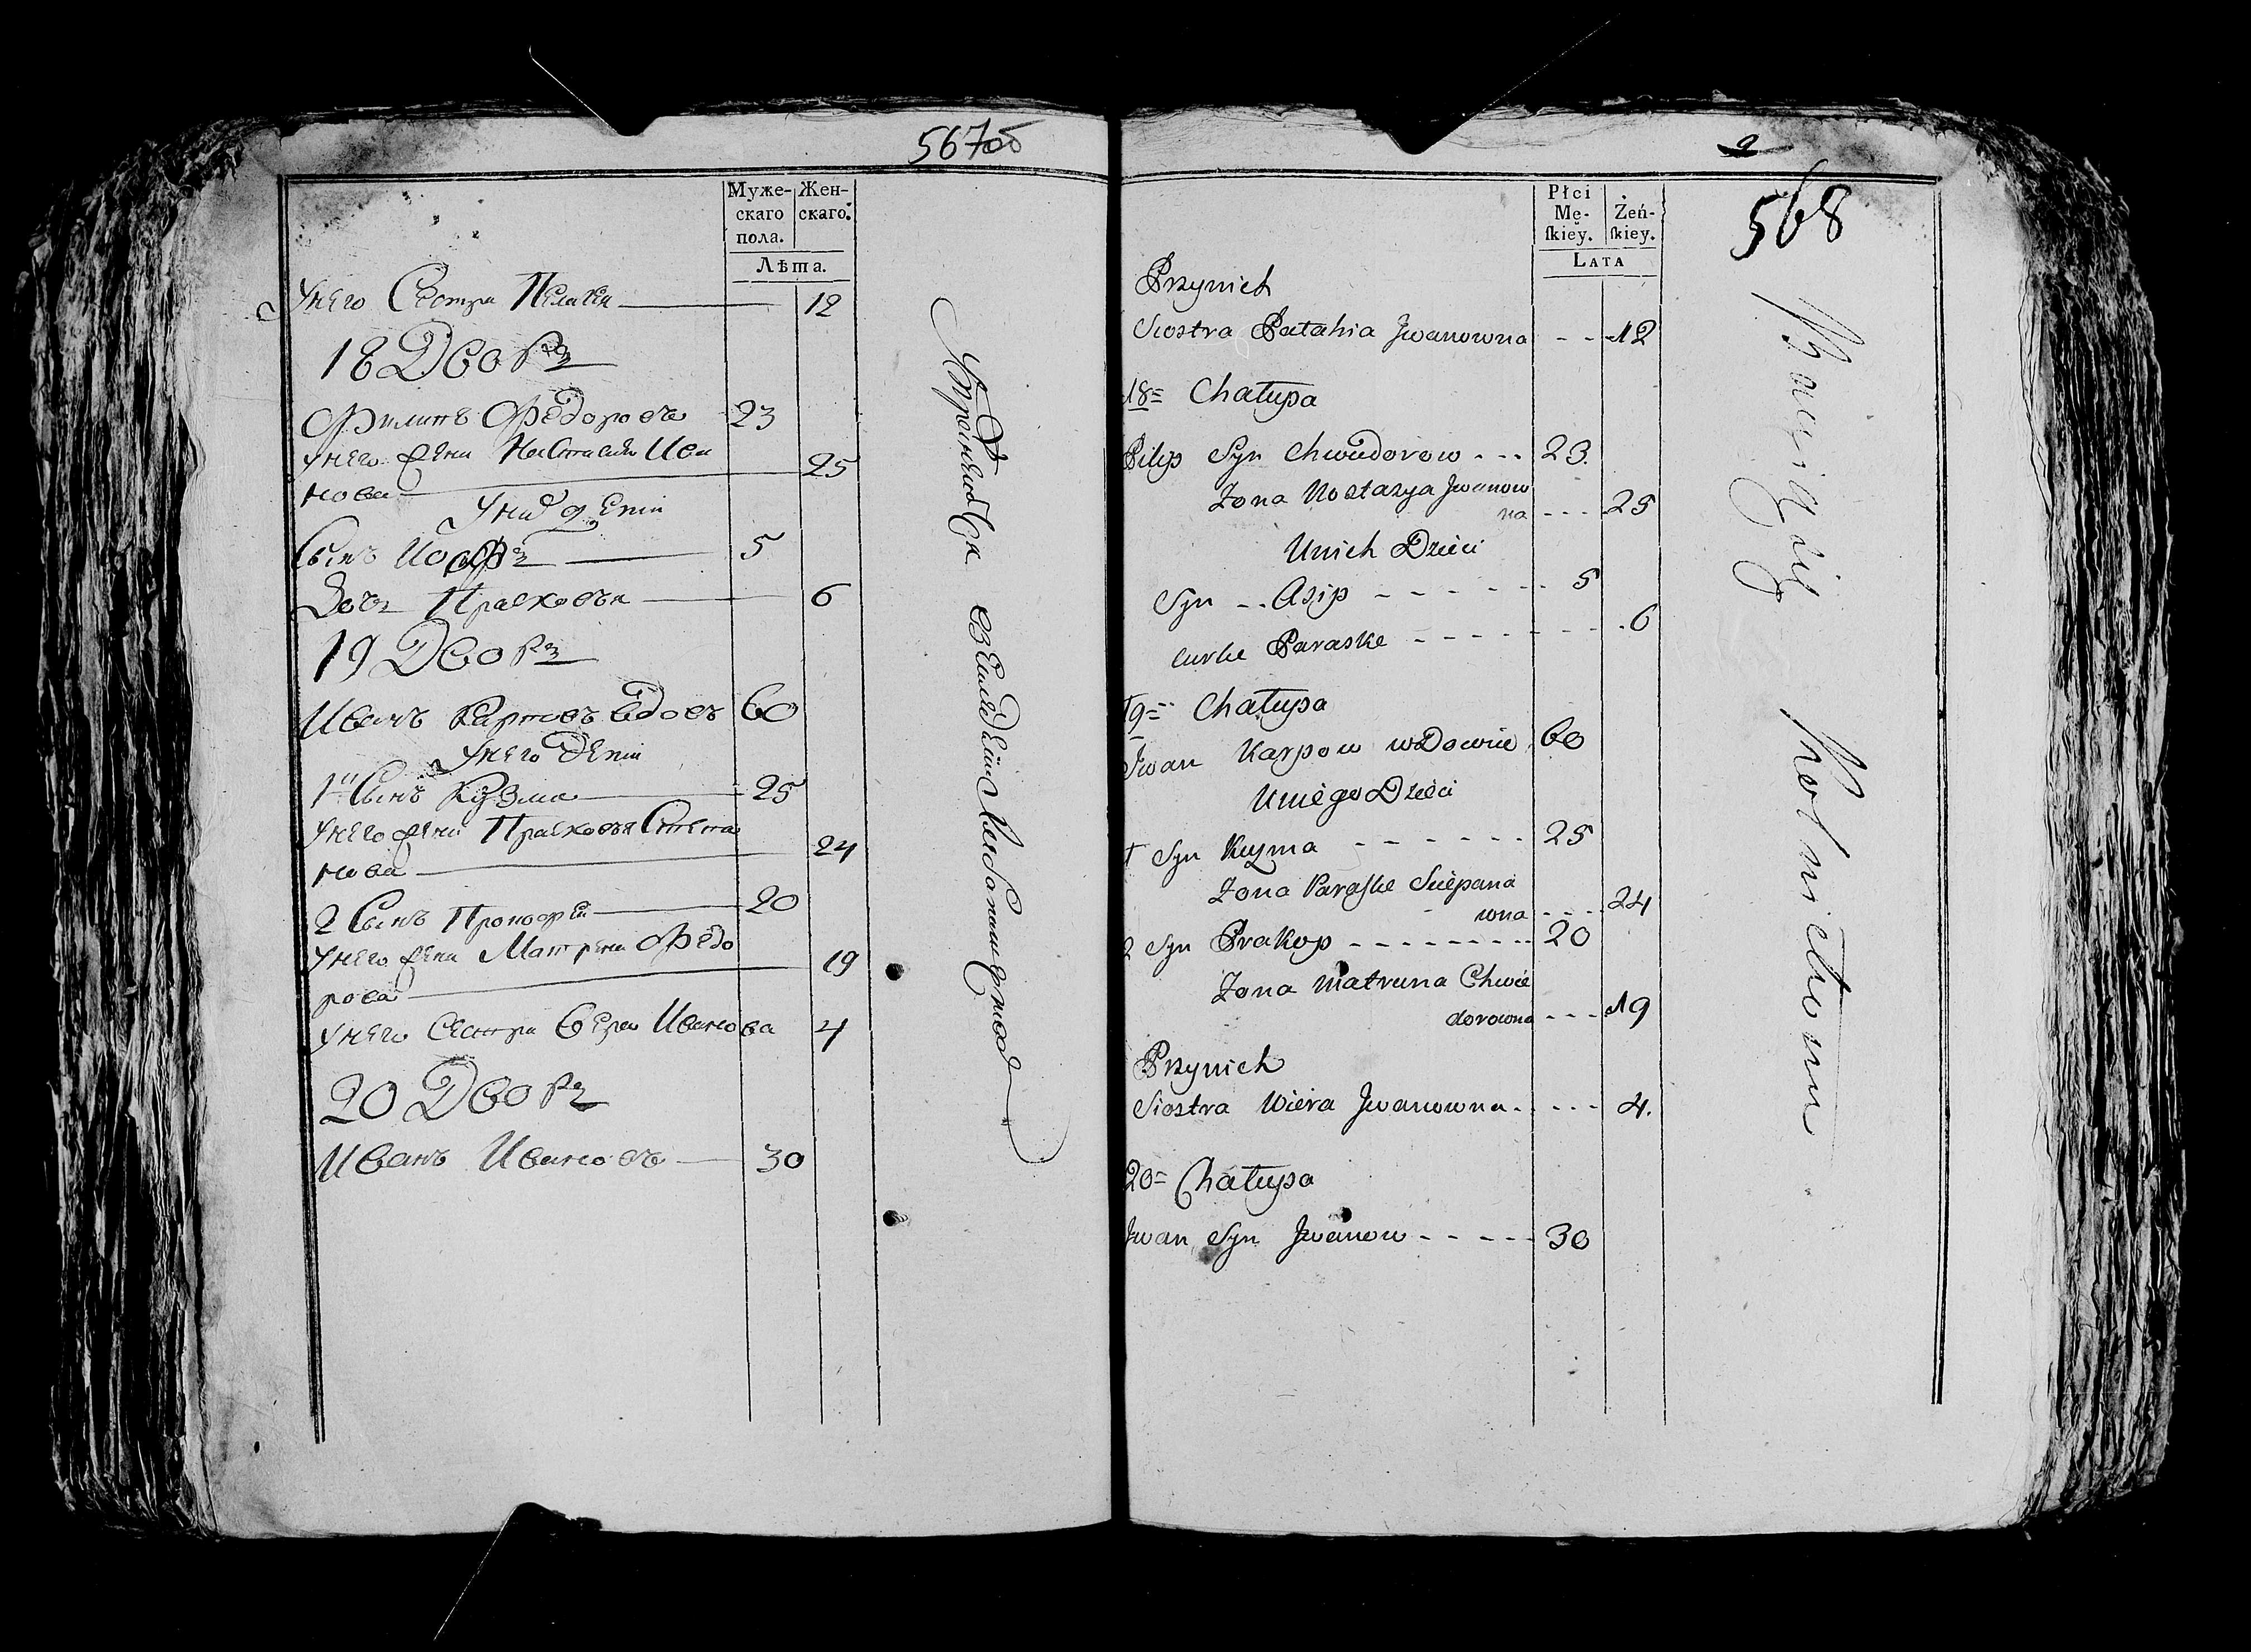 567об
Муже-
скаго
пола.
Жен-
скаго.
Лѣта.
У него Сестра Пелагея 12
18 Дворъ
Филипъ Федоровъ 23
У него Жена Настасья Ива
нова 25
У них дети
Сынъ Иосифъ 5
Дочь Прасковья 6
19 Дворъ
Иванъ Карповъ вдовъ 60
У него дети
1й Сынъ Кузма 25
У него Жена Прасковья Степа
нова 24
2 Сынъ Прокофей 20
У него Жена Матрена Федо
рова 19
У него Сестра Вера Иванова 4
20 Дворъ
Иванъ Ивановъ 30
2
568
Płci
Mę-
ſkiey.
Żeń-
ſkiey.
LATA
Przynich
Siostra Patahia Jwanowna - - 12
18= Chałupa
Pilip Syn Chwiedorow - - - 23.
Zona Nostazya Jwanow
na - - - 25
Unich Dzieci
Syn - - Asip - - - - - - 5
curke Paraske - - - - - - - - 6
19= Chałupa
Jwan Karpow wDowiec 60
Uniego Dzieci
1 Syn Kuzma - - - - - - 25
Zona Paraſke Sciepana
wna - - - 24
2 Syn Prakop - - - - - - - - 20
Zona Matruna Chwie
dorowna - - - 19
Przynich
Siostra Wiera Jwanowna - - - - 4.
20= Chałupa
Jwan Syn Jwanow - - - - - 30